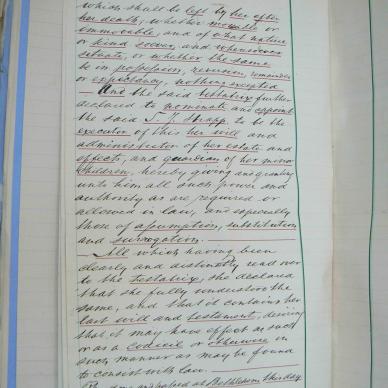 which shall be left by her after
her death, whether movable or
immovable, and of what nature
or kind soever, and wheresoever
situate, or whether the same
be in possession, reversion, remainder
or expectancy, nothing excepted
And the said testatrix further
declared to nominate and appoint
the said J. J. to be the
executor of this her will and
administrator of her estate and
effects, and guardian of her minor
children, hereby giving and granting
unto him all such power and
authority as are required or
allowed in law, and especially
those of assumption, substitution
and surrogation.
All which having been
clearly and distinctly read over
to the testatrix, she declared
that she fully understood the
same, and that it contains her
last will and testament, desiring
that it may have effect as such
or as a codicil or otherwise in
such manner as may be found
to consist with law.
at Bethlehem